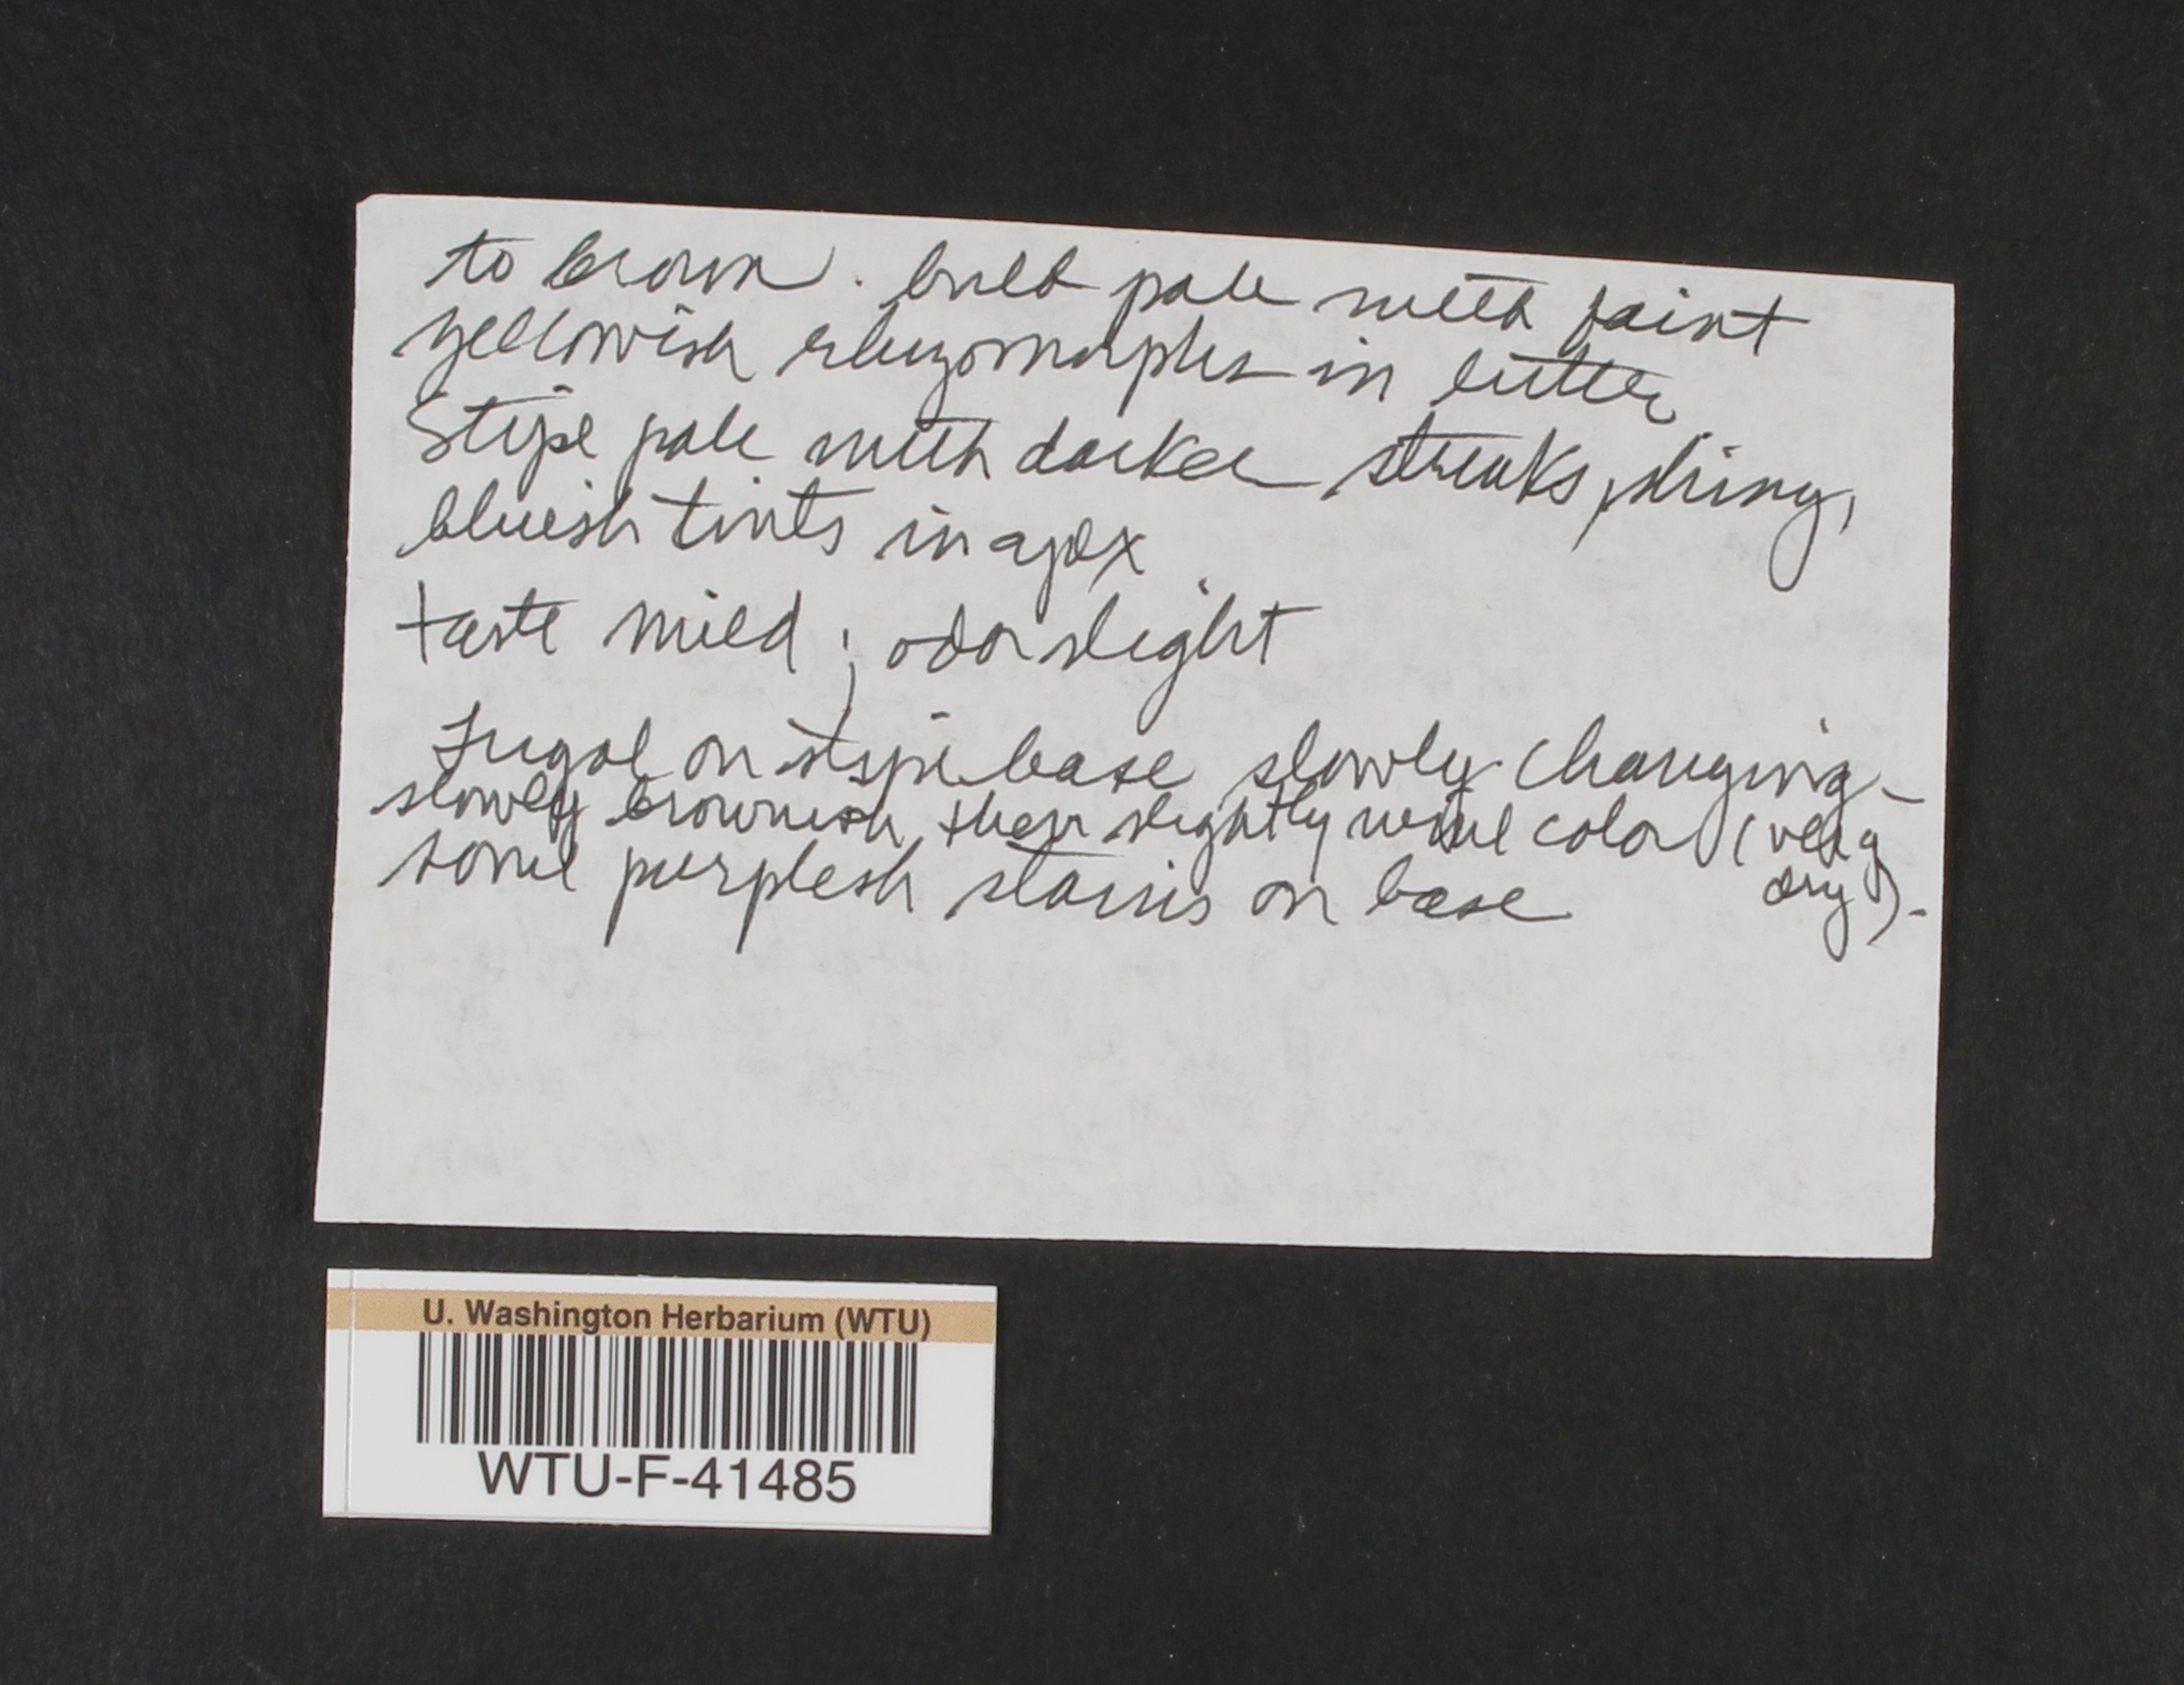 to brown. bulb pale with faint
yellowish rhizomorphs in litter
Stipe pale with darker streaks, shiny,
bluish tints in apex
taste mild; odor slight
Lugol on stipe base slowly changing -
slowly brownish, then slightly wine color (very
dry).
some purplish stains on base
U. Washington Herbarium (WTU)
WTU-F-41485